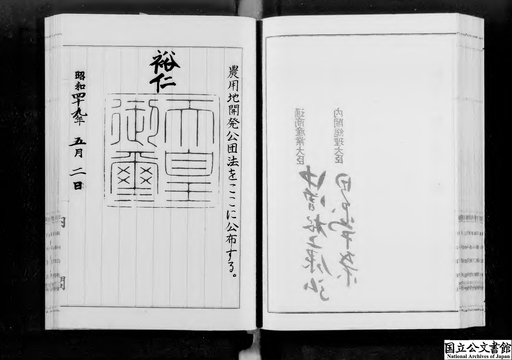 農用地開発公団法をここに公布する。
裕仁
天皇御璽
昭和四十九年 五月 二日
内閣総理大臣
通商産業大臣
国立公文書館
National Archives of Japan